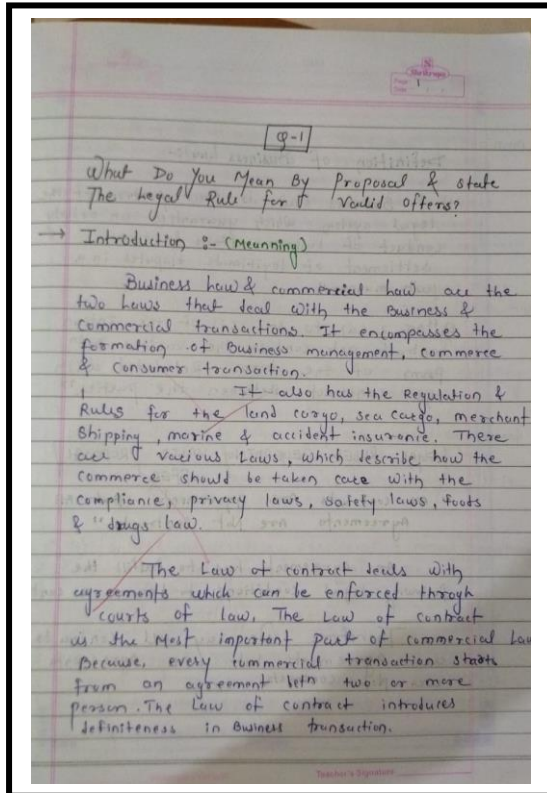 Shrikrupa
Page: 1
Date:
Q-1
What Do You Mean By Proposal & state
The Legal Rule for Valid Offers?
→ Introduction :- (Meanning)
Business Law & commercial Law are the
two Laws that deal with the Business &
Commercial transactions. It encompasses the
formation of Business management, commerce
& consumer transaction.
It also has the Regulation &
Rules for the land cargo, sea cargo, merchant
Shipping, marine & accident insurance. There
are various Laws, which describe how the
commerce should be taken care with the
compliance, privacy laws, safety laws, foods
& drugs Law.
The Law of contract deals with
agreements which can be enforced throgh
courts of law, The Law of contract
is the Most important part of commercial Law
Because, every commercial transaction starts
from an agreement betn two or more
person. The Law of contract introduces
definiteness in Business transaction.
Teacher's Signature